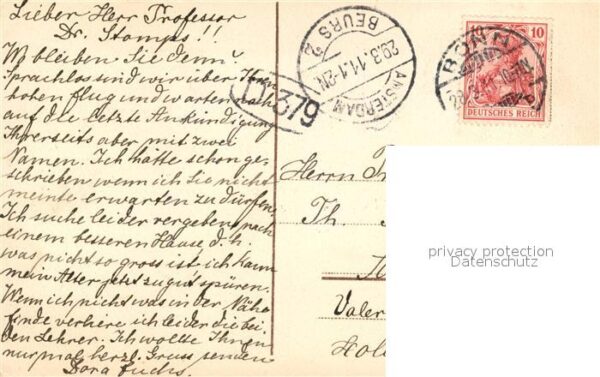 Lieber Herr Professor
Dr. Stomps!!
Wo bleiben Sie denn?
Sprachlos sind wir über Ihren
hohen flug und warten noch
auf die letzte Ankündigung
Ihrerseits aber mit zwei
Namen. Ich hätte schon ge-
schrieben wenn ich Sie nicht
meinte erwarten zu dürfen.
Ich suche leider vergebens nach
einem besseren Hause d. h.
was nicht so gross ist, ich kann
mein Alter jetzt zu gut spüren.
Wenn ich nicht was in der Nähe
finde verliere ich leider die bei-
den Lehrer. Ich wollte Ihnen
nur mal herzl. Gruss senden
Dora Fuchs.
AMSTERDAM
29.3.11.1-2N
BEURS 2
379
BONN
10
DEUTSCHES REICH
Herrn
Th.
Valer
Hol
privacy protection
Datenschutz